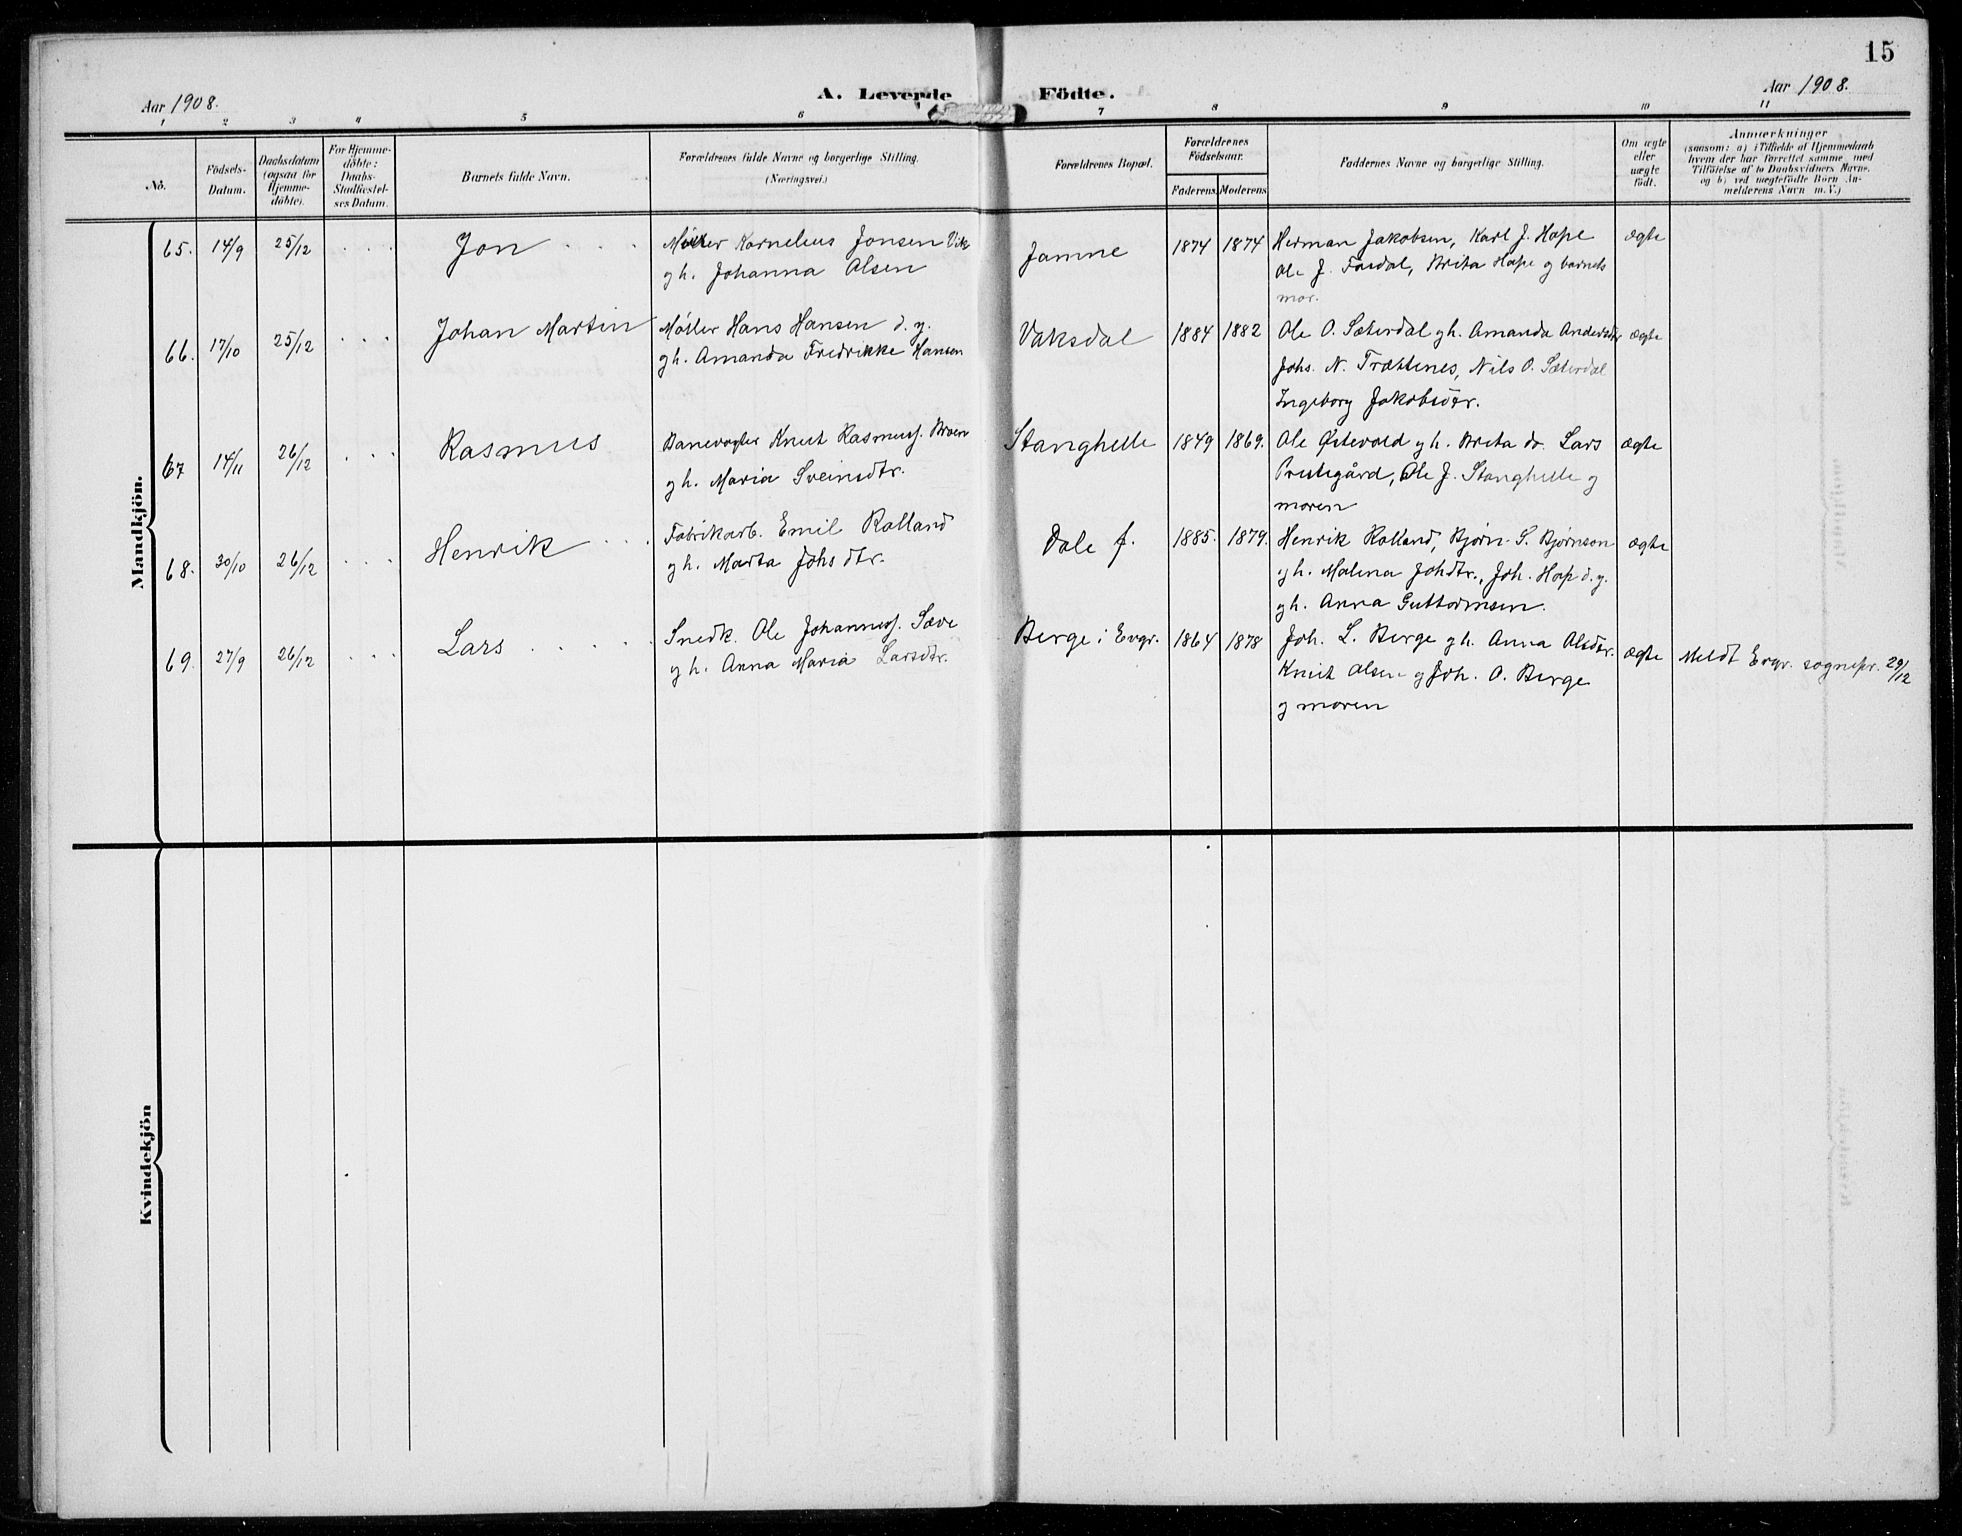 15
Aar 1908.
A. Levende Födte.
Aar 1908.
1 2 3 4 5 6 7 8 9 10 11
No.
Födsels-
Datum.
Daabsdatum
(ogsaa for
Hjemme-
döbte).
For Hjemme-
döbte:
Daabs-
Stadfæstel-
ses Datum.
Barnets fulde Navn.
Forældrenes fulde Navne og borgerlige Stilling.
(Næringsvei.)
Forældrenes Bopæl.
Forældrenes
Födselsaar.
Faderens. Moderens.
Faddernes Navne og borgerlige Stilling.
Om ægte
eller
uægte
födt.
Anmærkninger
(saasom: a) i Tilfælde af Hjemmedaab
hvem der har forrettet samme, med
Tilföielse af to Daabsvidners Navne,
og b) ved uægtefödte Börn An-
melderens Navn m. V.)
Mandkjön.
65. 14/9 25/12 . . . Jon . . . . Møller Kornelius Jonsen Vik
gh. Johanna Olsen
Jamne 1874 1874 Herman Jakobsen, Karl J. Hope
Ole J. Fosdal, Brita Hope og barnets
mor.
ægte
66. 17/10 25/12 . . . Johan Martin Møller Hans Hansen d.y.
gh. Amanda Fredrikke Hansen
Vaksdal 1884 1882 Ole O. Sæterdal gh. Amanda Andersdtr
Johs. N. Trættenes, Nils O. Sæterdal
Ingeborg Jakobsdtr.
ægte
67 14/11 26/12 . . . Rasmus Banevogter Knut Rasmuss. Broen
gh. Maria Sveinsdtr.
Stanghelle 1849 1869. Ole Østevold gh. Brita dr. Lars
Prestegård, Ole J. Stanghelle og
moren
ægte
68. 30/10 26/12 . . . Henrik . . . Fabrikarb. Emil Rolland
gh. Marta Johs dtr.
Dale f. 1885. 1879. Henrik Rolland, Bjørn S. Bjørnson
gh. Malena Johdtr., Joh. Hop d.y.
gh. Anna Guttormsen.
ægte
69. 27/9 26/12 . . . Lars . . . . . Snedk. Ole Johanness. Sæve
gh. Anna Maria Larsdtr.
Berge i Evgr. 1864 1878 Joh. L. Berge gh. Anna Olsdtr.
Knut Olsen og Joh. O. Berge
og moren
ægte Meldt Evgr. sognepr. 29/12
Kvindekjön